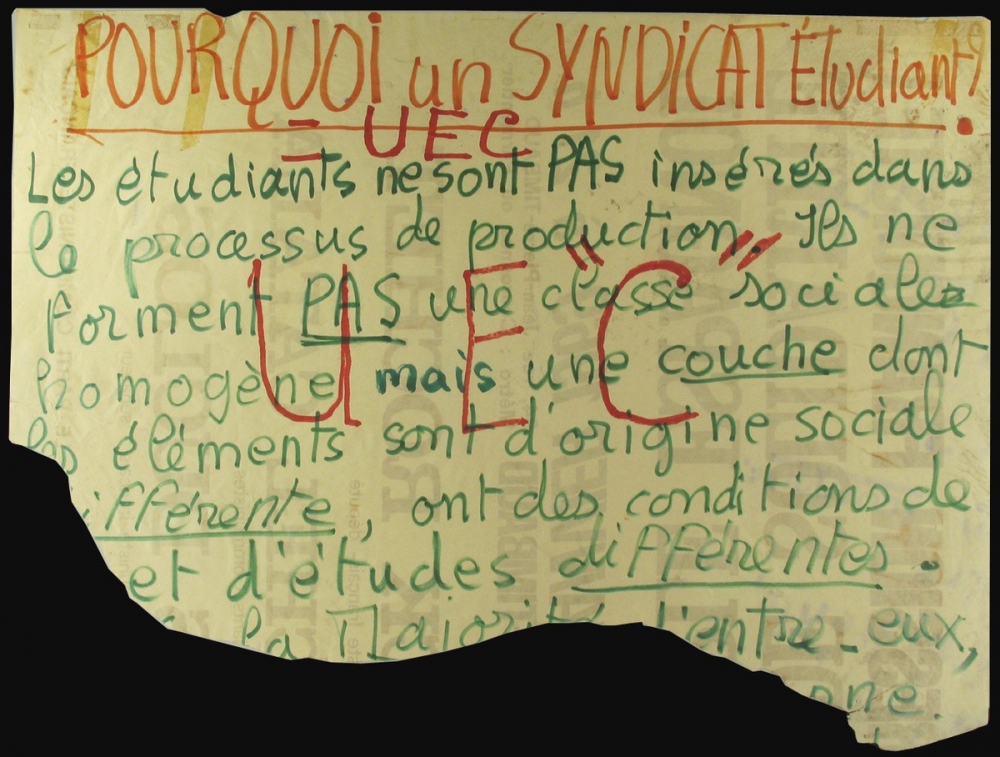 POURQUOI un SYNDICAT Étudiant?
- UEC -
Les étudiants ne sont PAS insérés dans
le processus de production. Ils ne
forment PAS une classe sociale
"UEC"
homogène mais une couche dont
les éléments sont d'origine sociale
ifférente, ont des conditions de
et d'études différentes.
la Majorité d'entre-eux,
one.